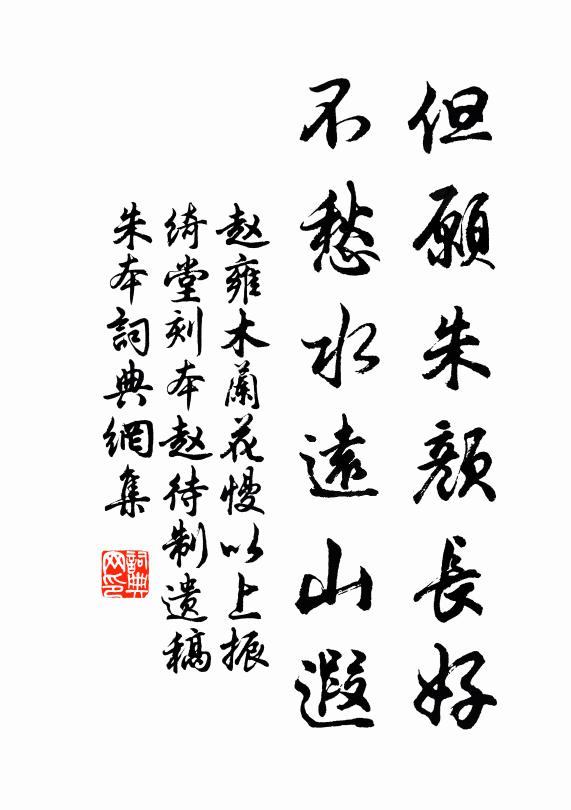 但願朱顏長好
不愁水遠山遐
赵雍木蘭花慢以上振
綺堂刻本赵待制遺稿
朱本詞典網集
詞典
网印